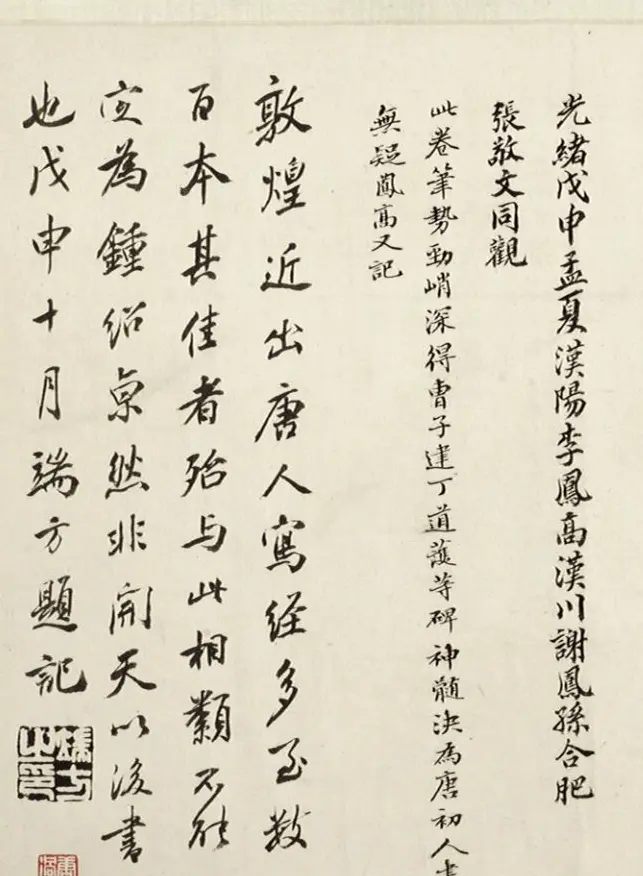 光緒戊申孟夏漢陽李鳳高漢川謝鳳孫合肥
張敬文同觀
此卷筆勢勁峭深得曹子建丁道護等碑神髓決為唐初人書
無疑鳳高又記
敦煌近出唐人寫經多至數
百本其佳者殆与此相類不能
定為鍾紹京然非開天以後書
也戊申十月端方題記